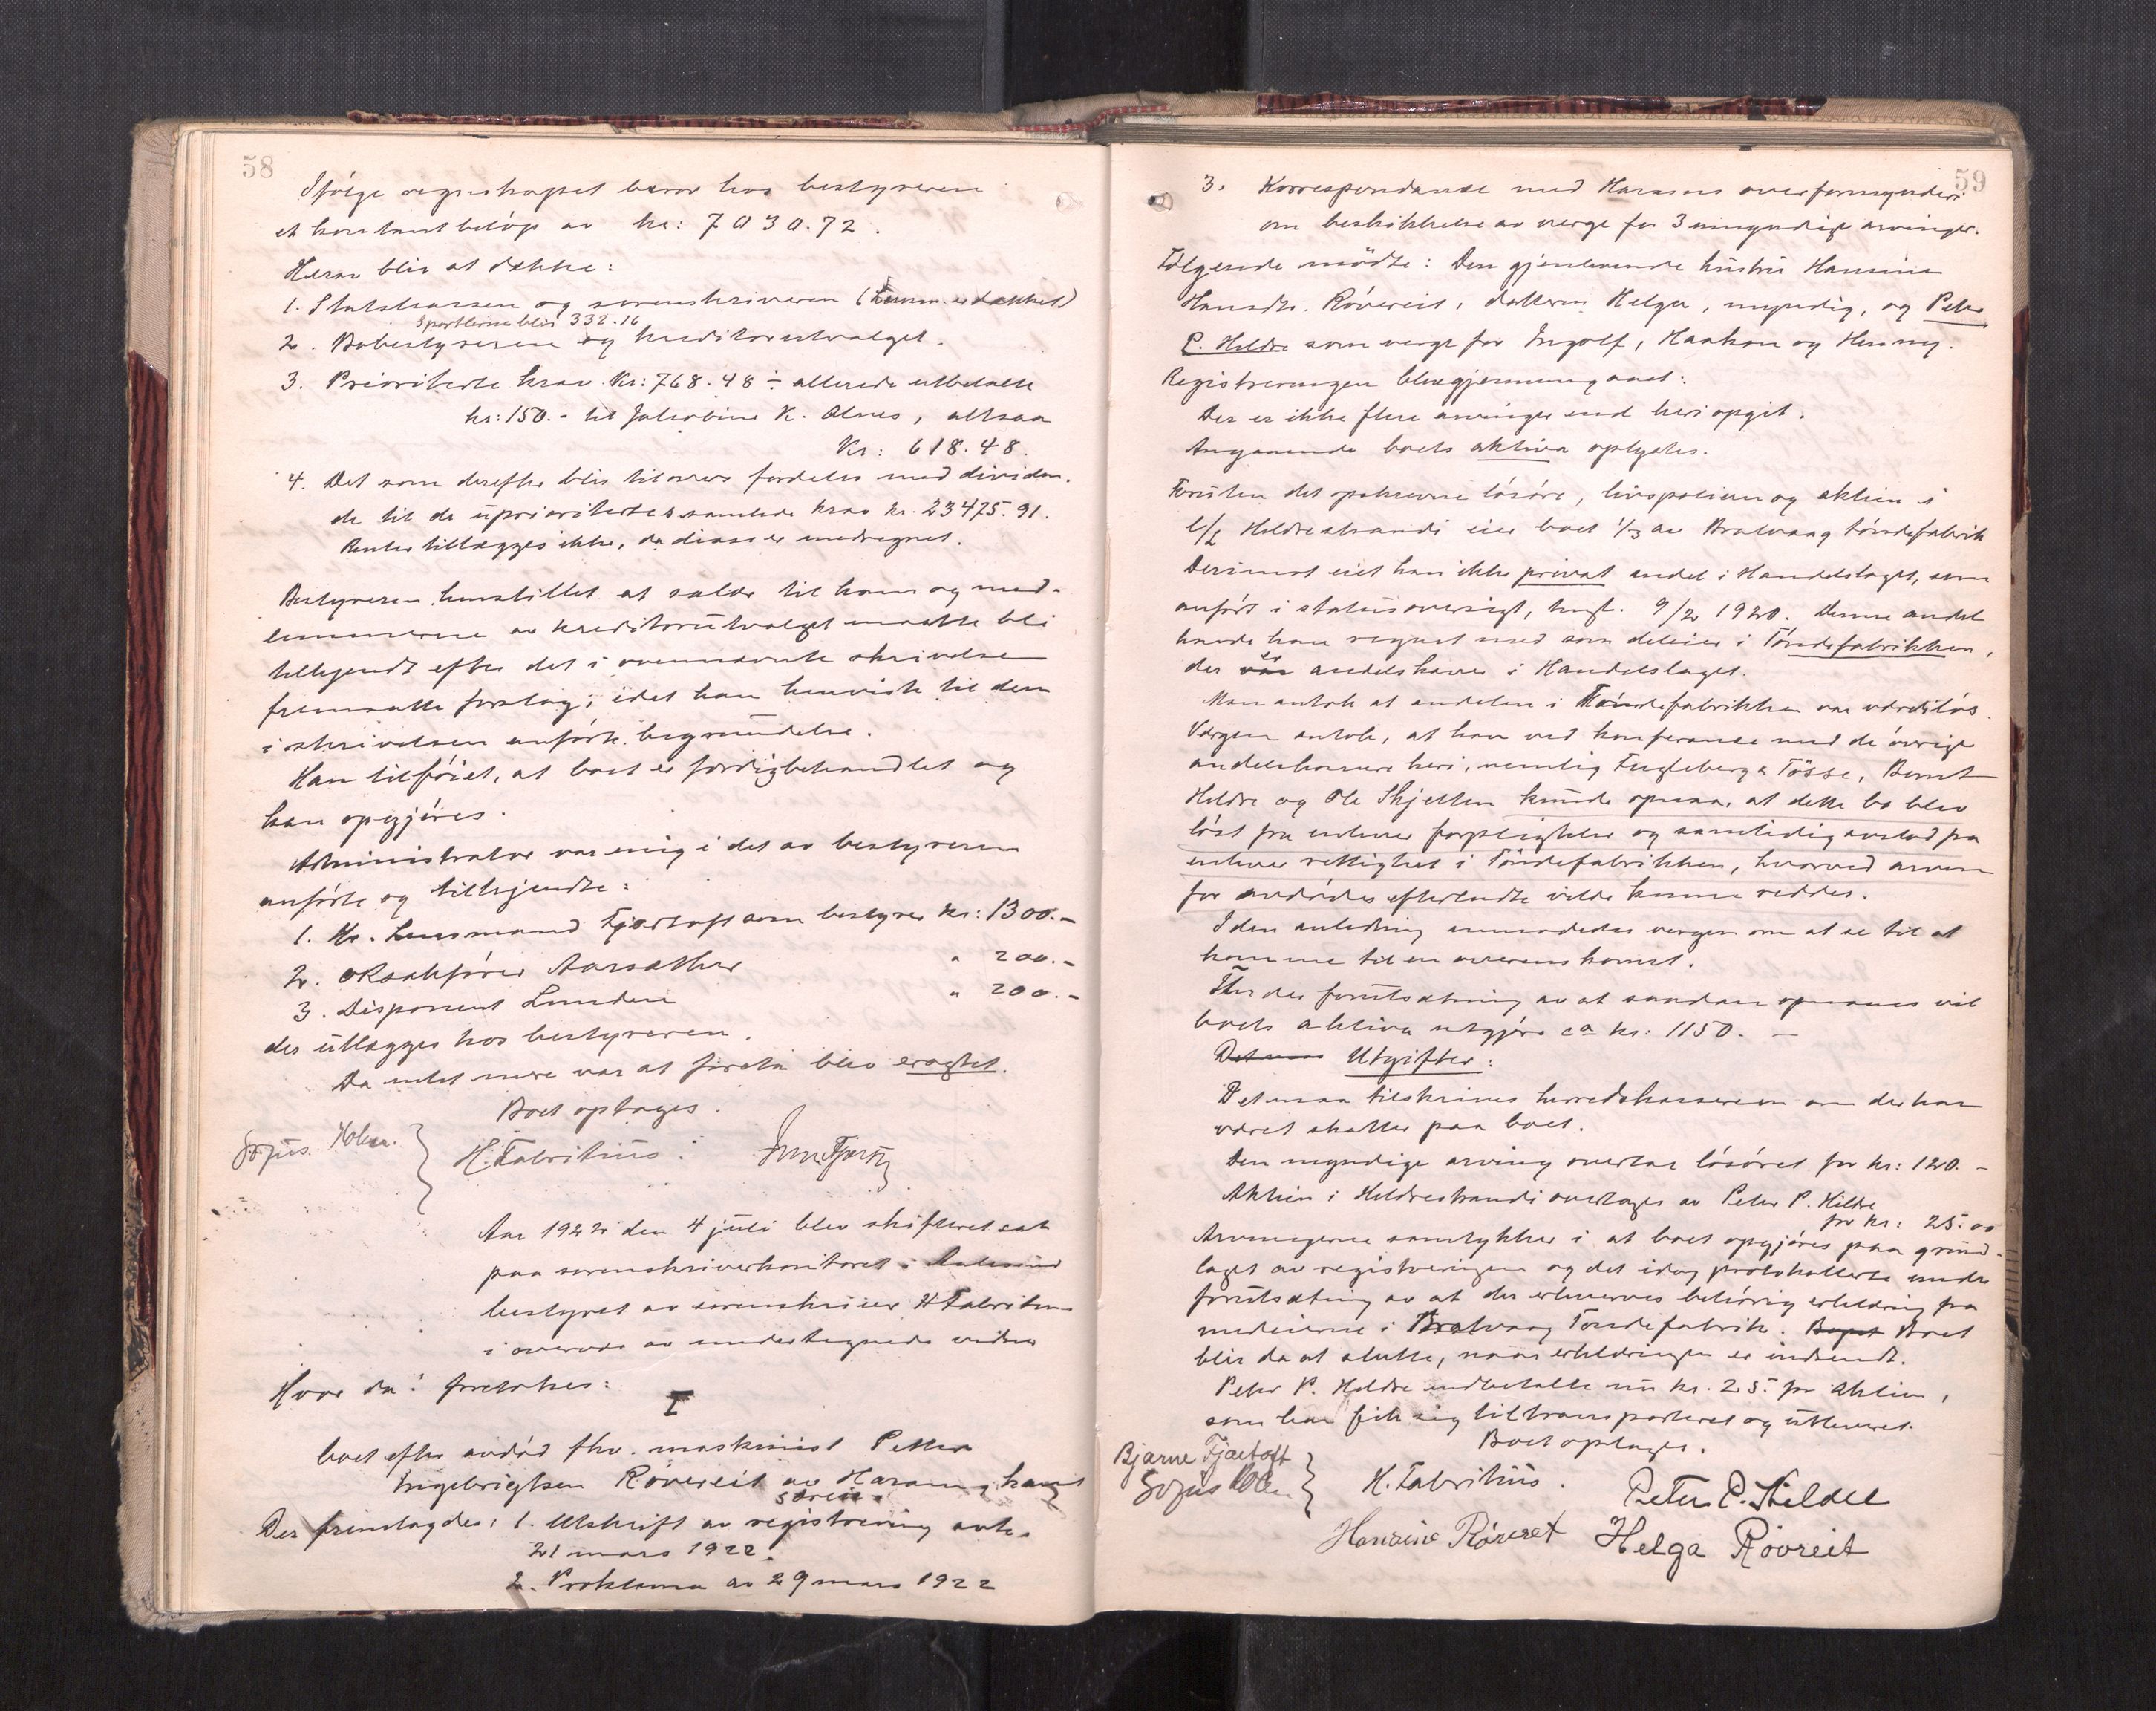 58
Ifølge regnskapet beror hos bestyreren
et kontantbeløp av kr: 7030.72.
Herav blir at dække:
1. Statskassen og sorenskriveren ( er dækket)
Sportlerne blir 332.16
2. Bobestyreren og kreditorutvalget.
3. Prioriterte krav kr: 768.48 ÷ allerede utbetalte
kr: 150.- til Jakobine K. Alnes, altsaa
Kr: 618.48.
4. Det som derefter blir tilovers fordeles med dividen-
de til de uprioritertes samlede krav kr. 23475.91.
Renter tillægges ikke, da disse er medregnet.
Bestyreren henstillet at salær til ham og med-
lemmerne av kreditorutvalget maatte bli
tilkjendt efter det i ovennævnte skrivelse
fremsatte forslag, idet han henviste til den
i skrivelsen anførte begrundelse.
Han tilføiet, at boet er færdigbehandlet og
kan opgjøres.
Administrator var enig i det av bestyreren
anførte og tilkjendte:
1. Hr. Lensmand Fjørtoft som bestyrer kr: 1300.-
2. ORsakfører Aarsæther " 200.-
3. Disponent Lunden " 200.-
der utlægges hos bestyreren.
Da intet mere var at foreta blev eragtet.
Boet optages.
Sofus Holm. } H. Fabritius.
Aar 1922 den 4 juli blev skifteret sat
paa sorenskriverkontoret i Aalesund
bestyret av sorenskriver H Fabritius
i overvær av undertegnede vidner
Hvor da! foretokes:
I
boet efter avdød fhv. maskinist Petter
Ingebrigtsen Røvereit av Haram, hans
særeie.
Der fremlagdes: 1. Utskrift av registrering avh.
21 mars 1922.
2. Proklama av 29 mars 1922
59
3. Korrespondanse med Harams overformynderi
om beskikkelse av verge for 3 umyndige arvinger.
Følgende mødte: Den gjenlevende hustru Hansine
Hansdtr. Røvereit, datteren Helga, myndig, og Peter
P. Hildre som verge for Ingolf, Haakon og Henny.
Registreringen blev gjennemgaaet:
Der er ikke flere arvinger end heri opgit.
Angaaende boets aktiva oplystes.
Foruten det opskrevne løsøre, livspolisen og aktien i
l/l Hildrestrand i eier boet 1/3 av Bratvaag Tøndefabrik
Derimot eiet han ikke privat andel i Handelslaget, som
anført i statusoversigt, tingl. 9/2 1920. Denne andel
havde han regnet med som deleier i Tøndefabrikken,
der var er andelshaver i Handelslaget.
Man antok at andelen i Tøndefabrikken var værdiløs.
Vergen antok, at han ved konferanse med de øvrige
andelshavere heri, nemlig Fugleberg & Tösse, Bernt
Hildre og Ole Skjelten kunde opnaa, at dette bo blev
løst fra enhver forpligtelse og samtidig avstod fra
enhver rettighet i Tøndefabrikken, hvorved arven
for avdødes efterlatte vilde kunne reddes.
I den anledning anmodedes vergen om at se til at
komme til en overenskomst.
Under forutsætning av at saadan opnaaes vil
boets aktiva utgjøre ca kr: 1150. -
Det maa Utgifter:
Det maa tilskrives herredskassereren om der har
været skatter paa boet.
Den myndige arving overtar løsøret for kr: 120.-
Aktien i Hildrestrand i overtages av Peter P. Hildre
for kr: 25.00
Arvingerne samtykker i at boet opgjøres paa grund-
laget av registreringen og det idag protokollerte under
forutsætning av at der erhverves behørig erklæring fra
medeierne i Bratvaag Tøndefabrik. Boet
blir da at slutte, naar erklæringen er indsendt.
Peter P. Hildre indbetalte nu kr. 25. for aktien,
som han fik sig tiltransporteret og utleveret.
Boet optages.
Bjarne Fjærtoft
Sofus Holm } H. Fabritius. Peter P. Hildre
Hansine Røvreit Helga Røvreit